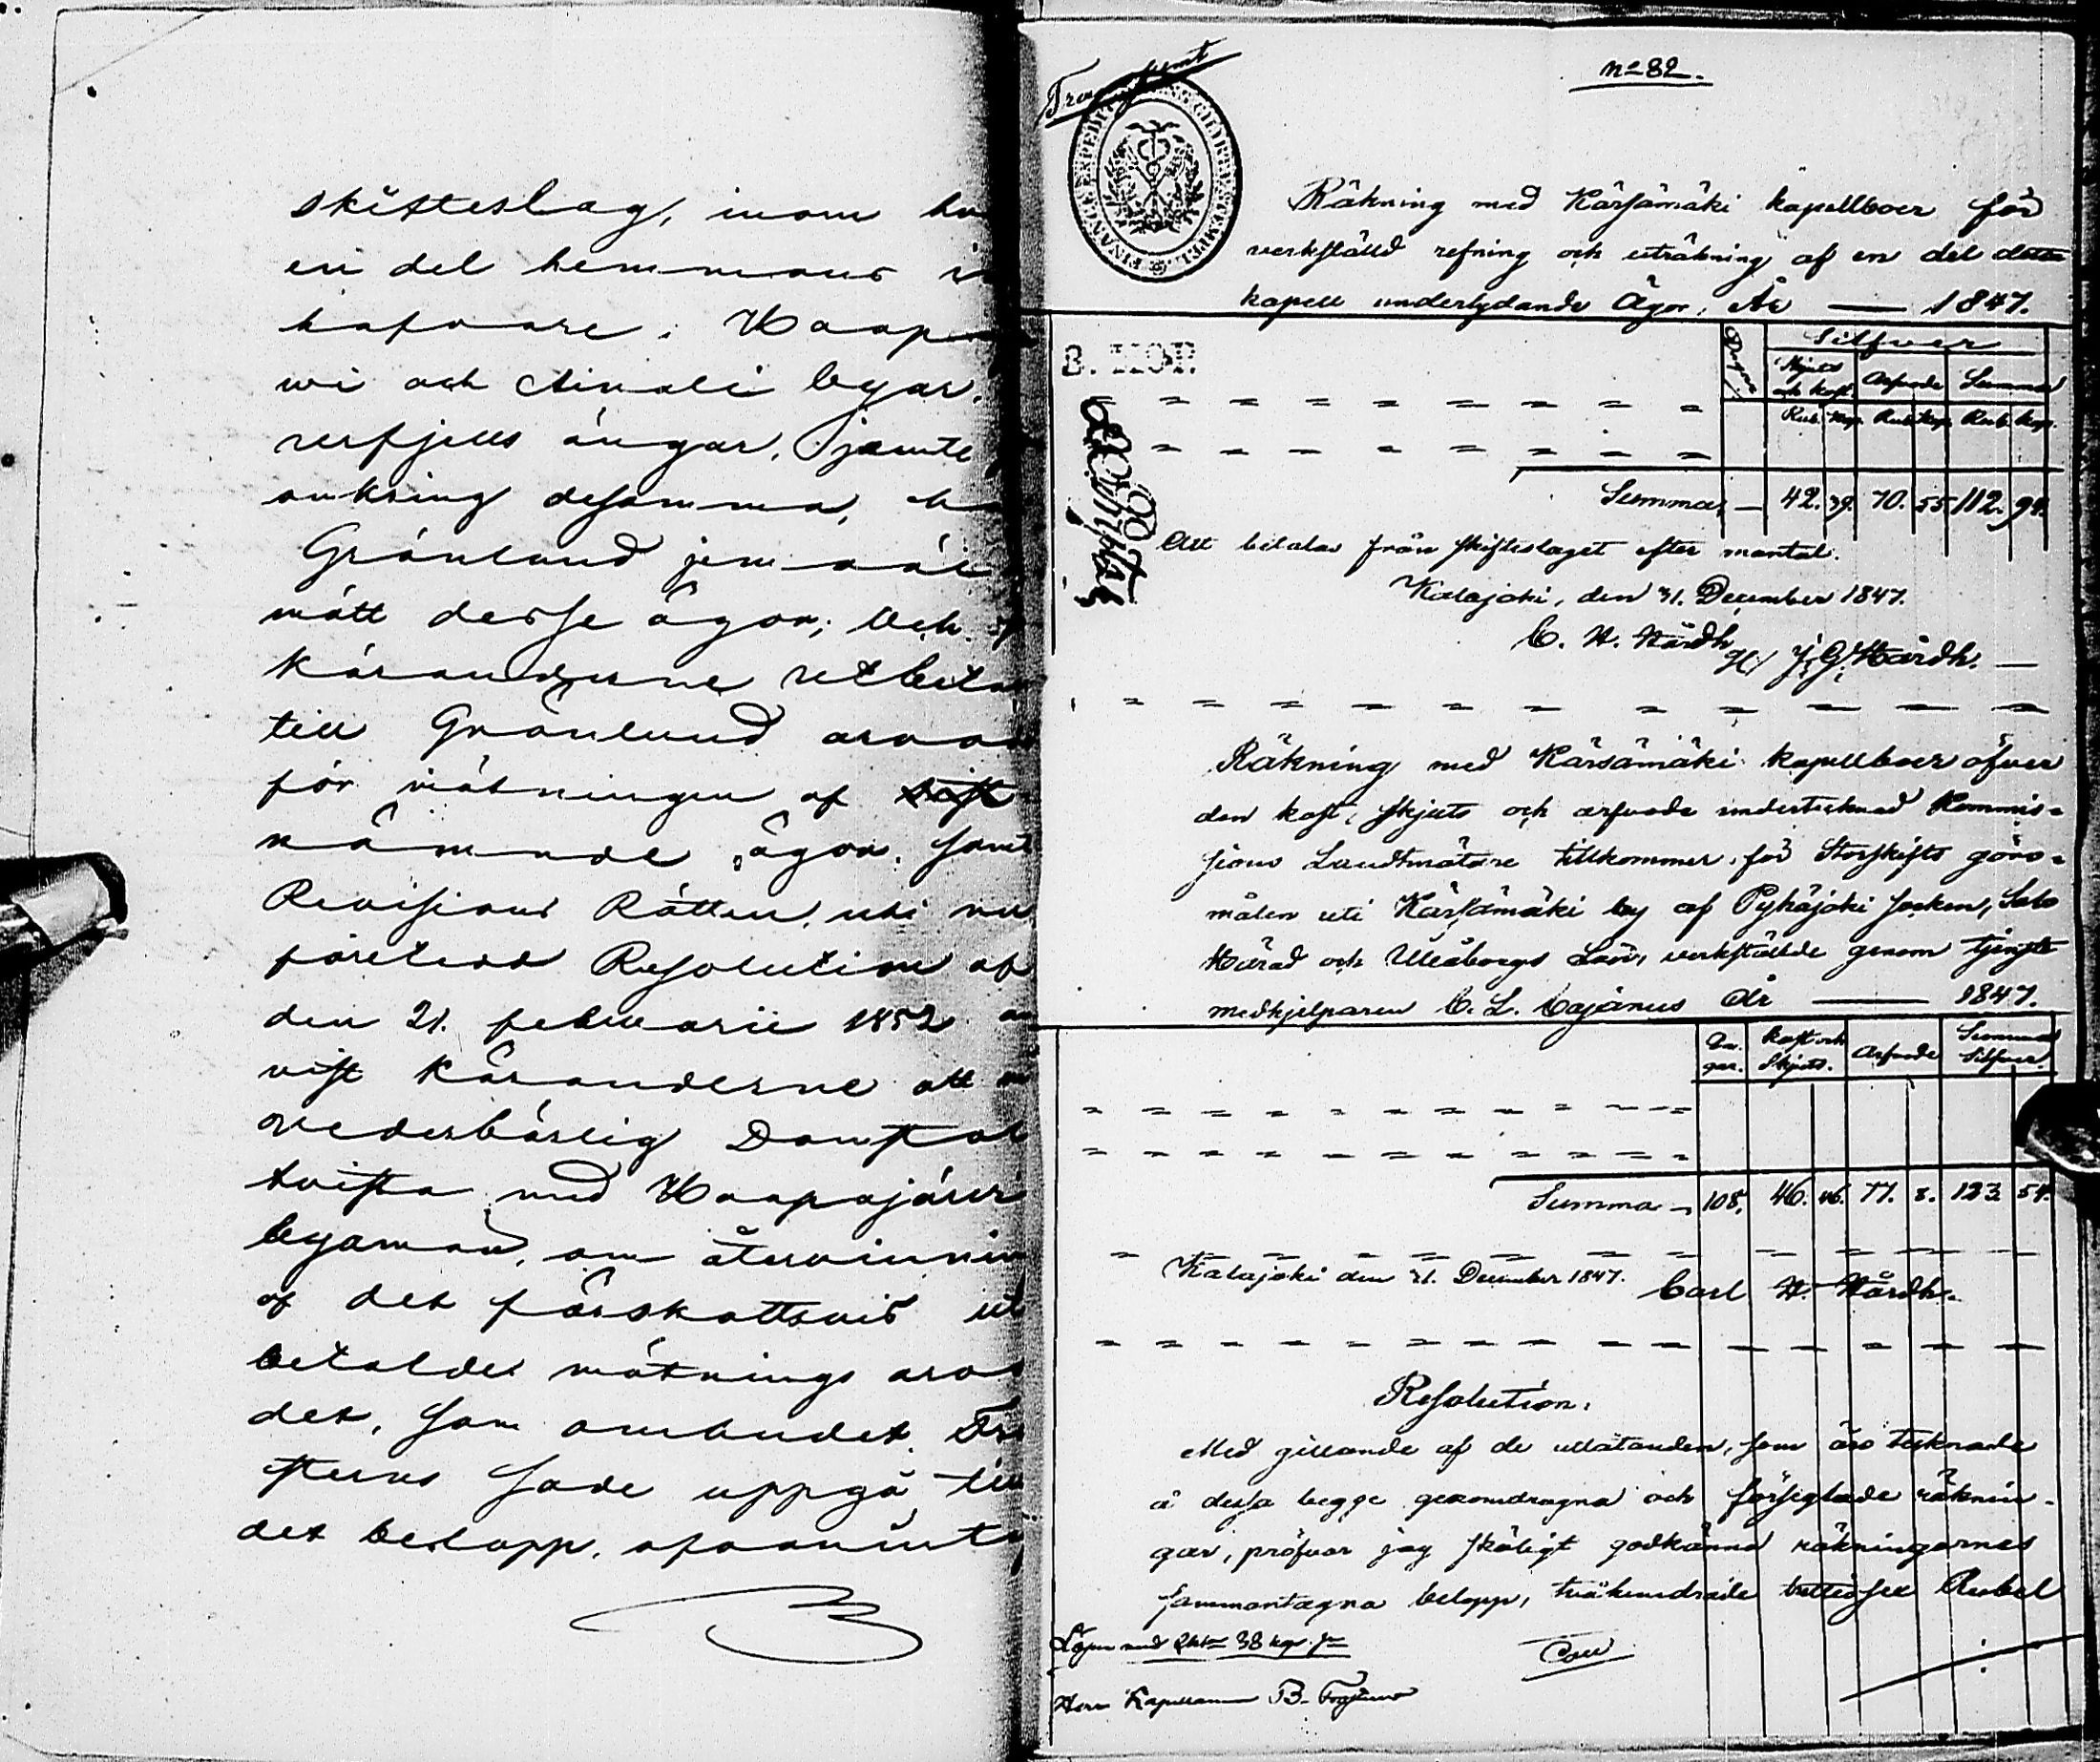 skifteslag, inom
en del hemmans
hafvare i Haap
wi och Ainali byar,
refsjells ängar, jemte
omkring desamma,
Grönlund jemväl
mätt desse ägor; Och
käranderne utbetal
till Grönlund arvode
för mätningen af
nämnde ägor, samt
Revisions Rätten uti nu
företedd Resolution af
den 21. februarii 1852
vist käranderne att
vederbörlig Domstol
tvista med Haapajärvi
byamän, om återvinnin
af det förskottsvis ut
betalde mätnings arvo
det, som ombudet
sade uppgå till
det belopp,
Transsumt
No 82.
FINANCE EXPEDITION
Räkning med Kärsämäki kapellboer för
verkställd refning och uträkning af en del detta
kapell underlydande Ägor, År — 1847.
3. KOP.
Dagar
Silfver
Skjuts och kost. Arfvode Summa
Rub. Kop. Rub. Kop. Rub. Kop.
Summa — 42. 39. 70. 55. 112. 94.
Att betalas från skifteslaget efter mantal.
Kalajoki, den 31. December 1847.
C. H. Hårdh
J. G. Hårdh. —
Räkning med Kärsämäki kapellboer öfver
den kost, skjuts och arfvode undertecknad Kommis=
sions Landtmätare tillkommer för Storskifts göro=
målen uti Kärsämäki by af Pyhäjoki Socken, Salo
Härad och Uleåborgs Län, verkställde genom tjenste
medhjelparen C. L. Cajanus År — 1847.
Da- gar. Kost och Skjuts. Arfvode Summa Silfver.
Summa — 108. 46. 46. 77. 8. 123. 54.
Kalajoki den 31. December 1847.
Carl H. Hårdh.
Resolution.
Med gillande af de utlåtanden, som äro tecknade
å dessa begge genomdragna och förseglade räknin-
gar, pröfvar jag skäligt godkänna räkningarnes
sammantagna belopp, tvåhundrade trettiosex Rubel
38 kop.
Herr Kapellanen B.